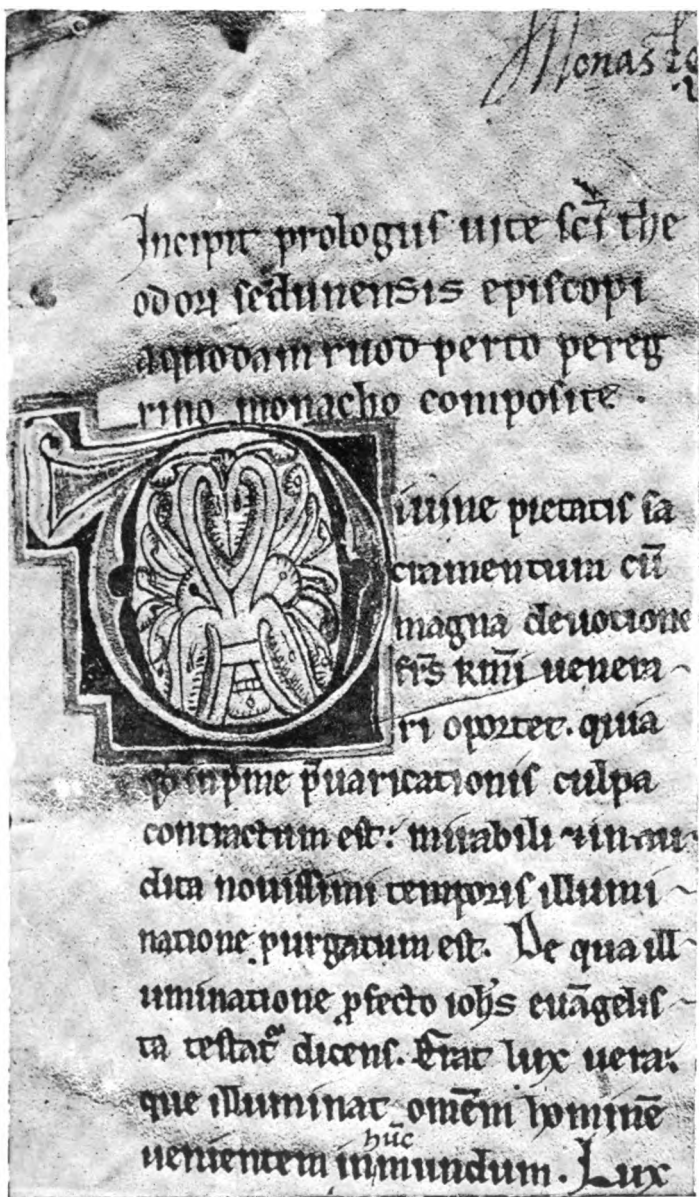 Monaste
Incipit prologus uite scī the
odori sedunensis episcopi
aquodam ruod perto pereg
rino monacho composite.
Diuine pietatis sa
cramentum cū
magna deuotione
frs̄ km̄i uenera
ri oportet. quia
qd̄ in pme p̄uaricationis culpa
contractum est: mirabili
dita nouissimi temporis illumi
natione purgatum est. De qua ill
uminatione ꝓfecto ioh̄s euāgelis
ta testat᷑ dicens. Erat lux uera:
que illuminat omēm hominē
uenientem in hūc mundum. Lux